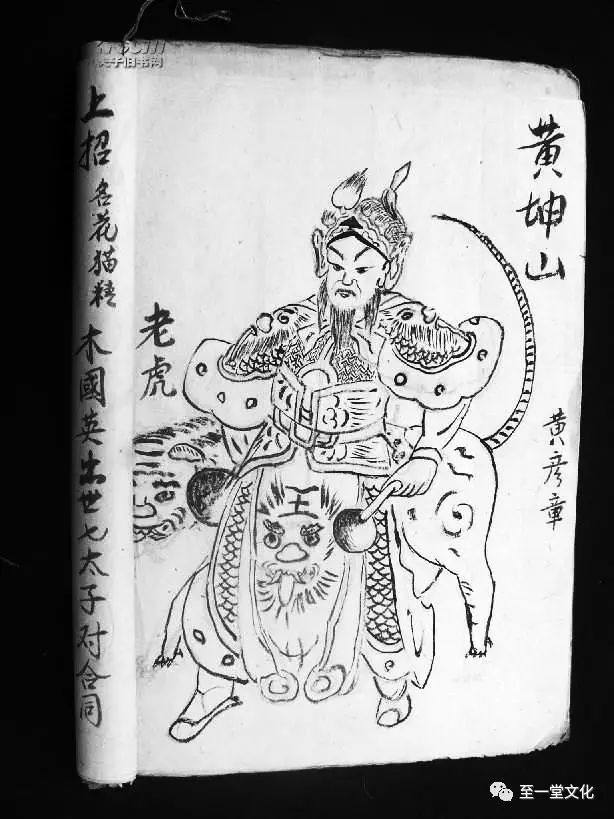 黄坤山
黄彦章
老虎
王
上招名花猫精木國英出世七太子对合同
至一堂文化